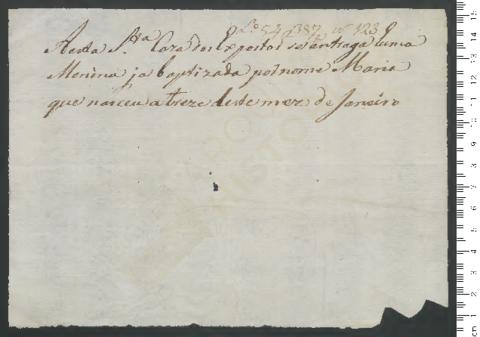 Aesta Sta Caza dos Expostos se entrega huma
Menina ja baptizada por nome Maria
que nasceu a treze deste mez de Janeiro